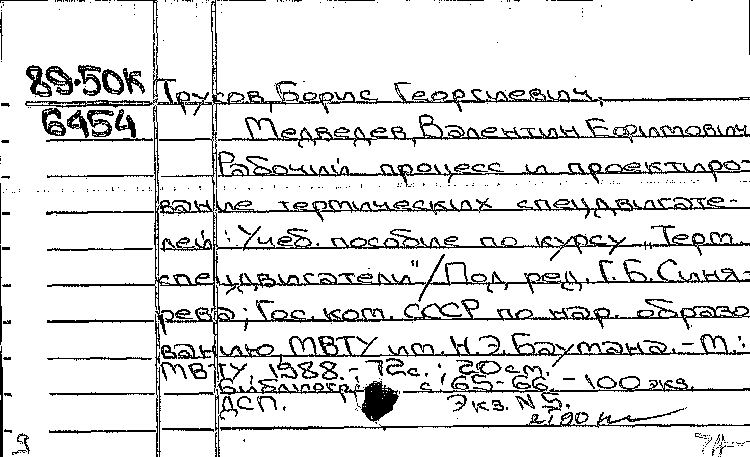 89-50К
6454
Трусов, Борис Георгиевич,
Медведев, Валентин Ефимович
Рабочий процесс и проектиро-
вание термических спецдвигате-
лей: Учеб. пособие по курсу „Терм.
спецдвигатели" / Под ред. Г.Б. Синя-
рева; Гос. ком. СССР по нар. образо
ванию МВТУ им. Н.Э. Баумана. - М.:
МВТУ, 1988. - 72с.; 20см.
Библиогр.: с. 65-66. - 100 экз.
ДСП. Экз. N 5.